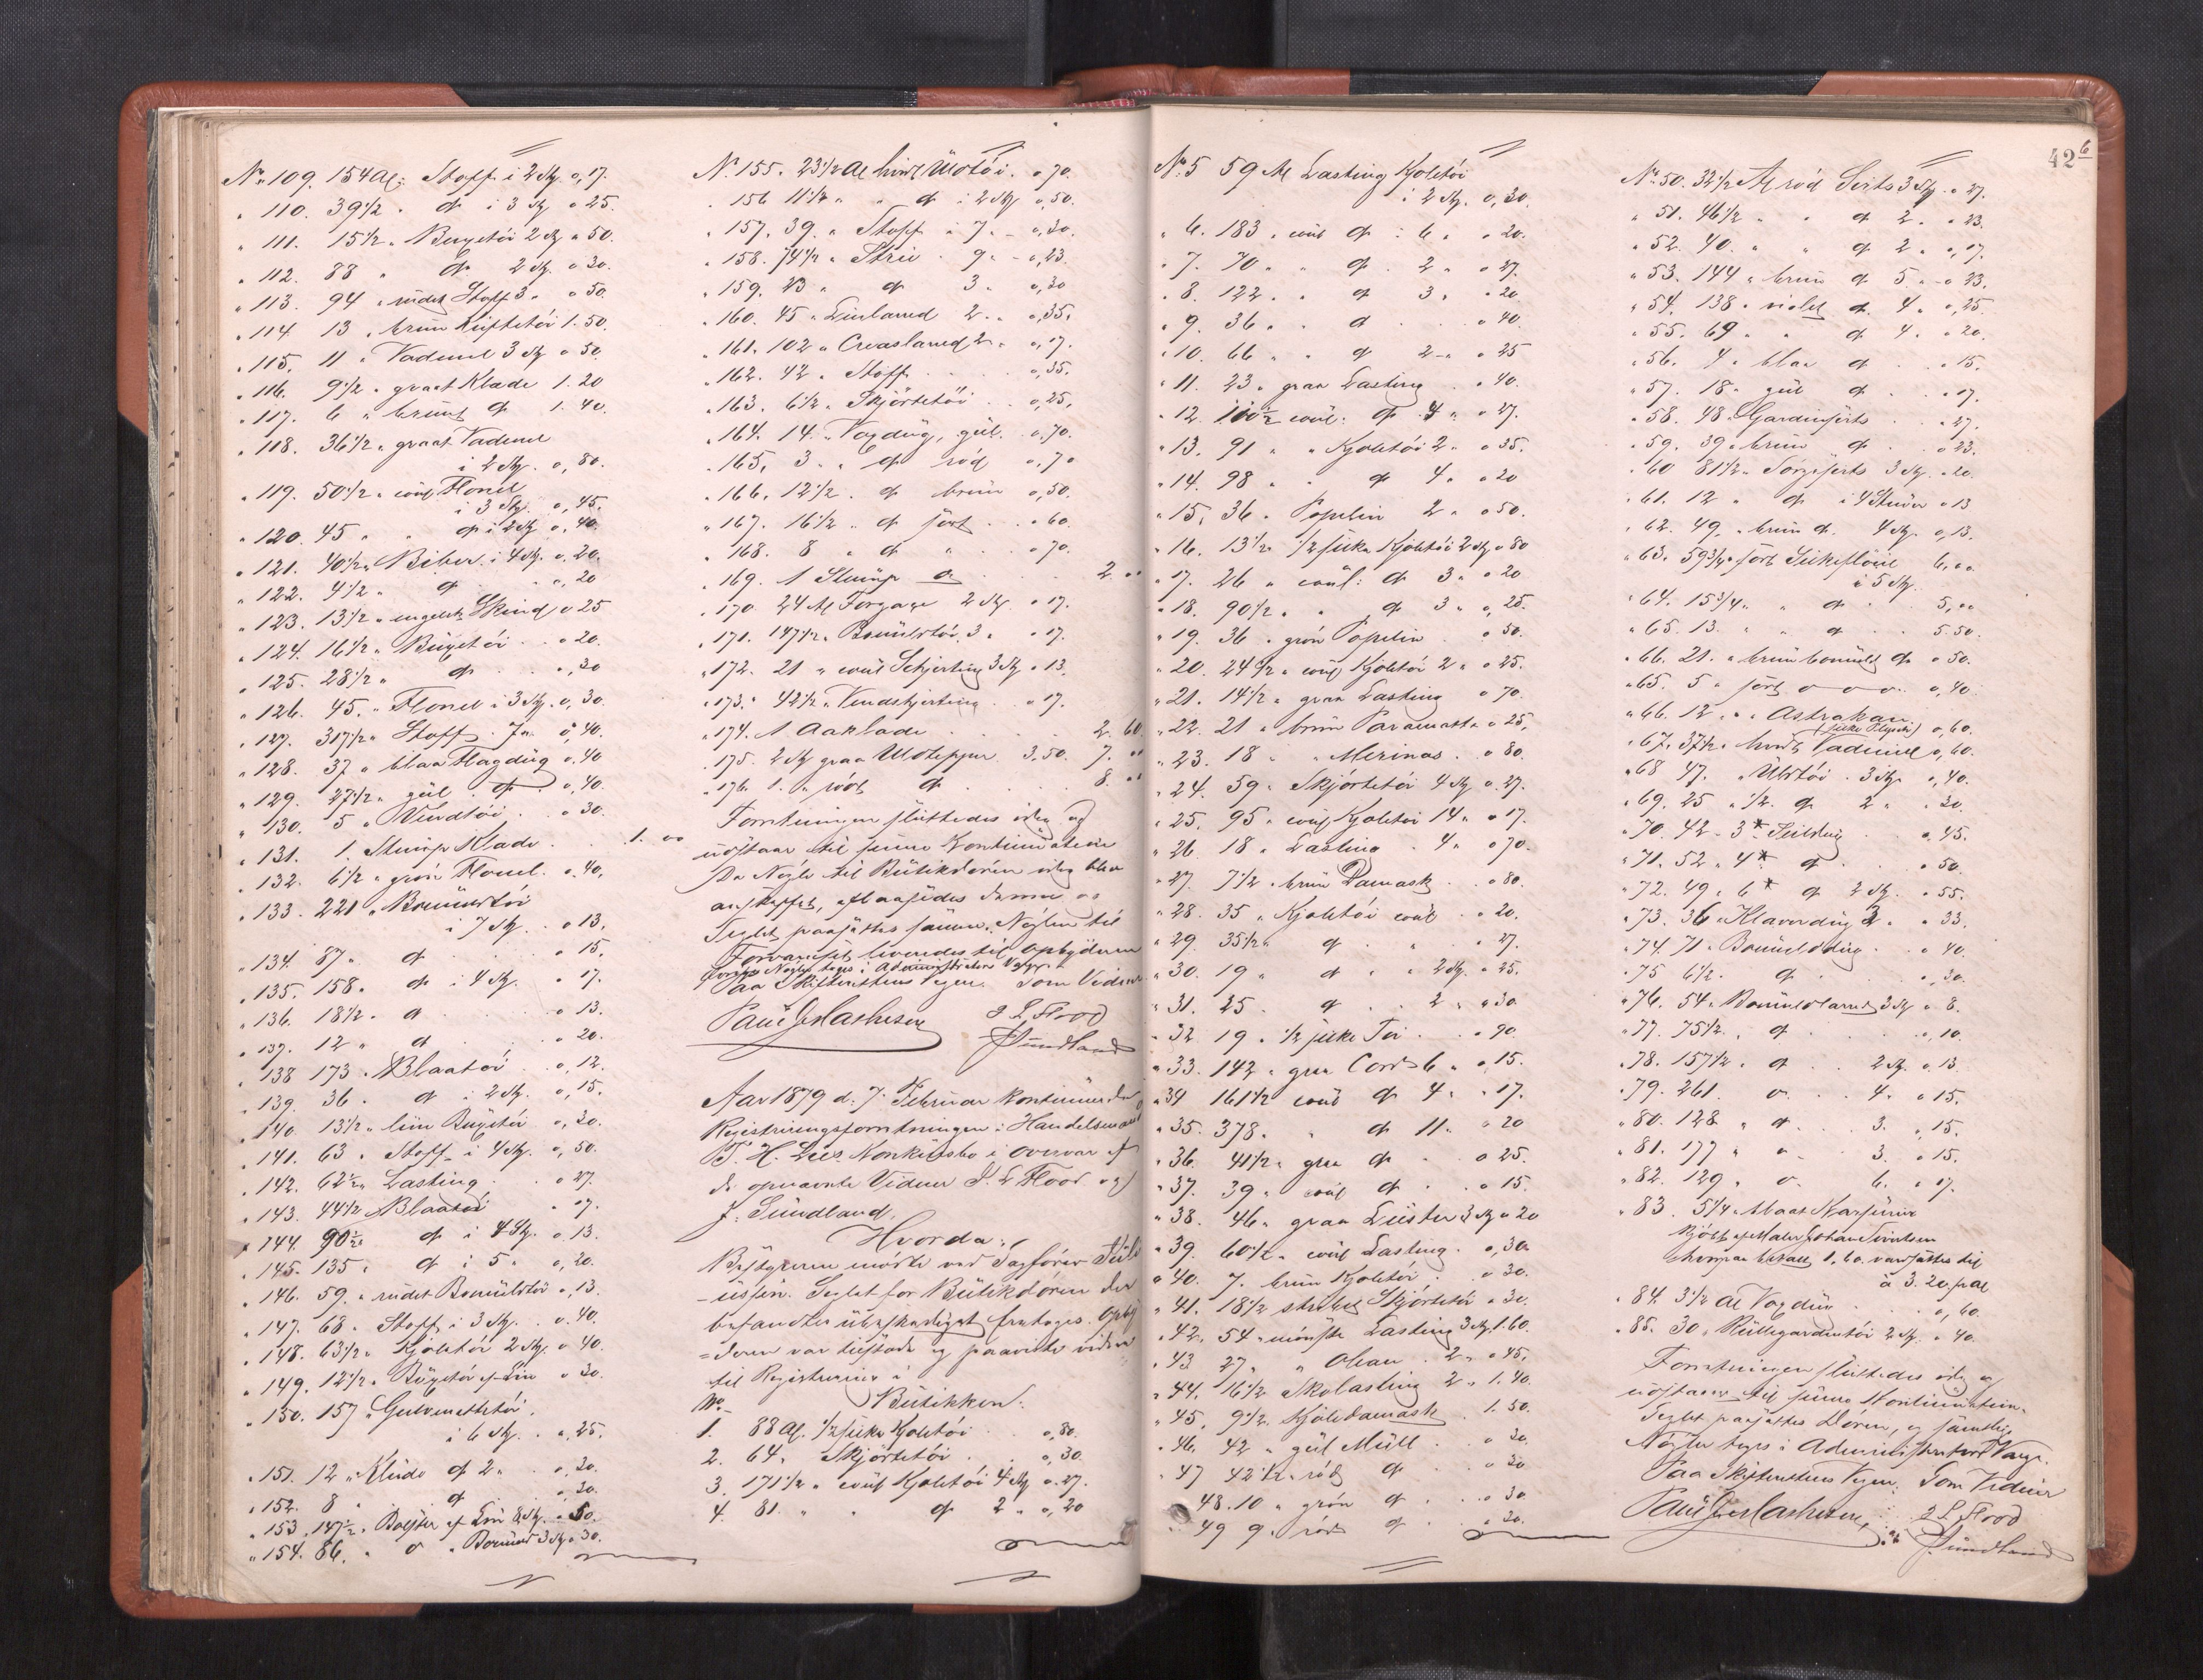 No 109. 154 Al: Stoff i 2 Stk. 0,17.
" 110. 39 1/2 " do i 3 Stk 0 25.
" 111. 15 1/2 " Buxetöi 2 Stk " 50.
" 112. 88 " do 2 Stk. 0 30.
" 113. 94 " rudet Stoff 3 " 0 50.
" 114. 13 " brun Kuftetöi 1. 50.
" 115. 11 " Vadmel 3 Stk 0 50.
" 116. 9 1/2 " graat Klæde 1. 20
" 117. 6 " brunt do 1. 40.
" 118. 36 1/2 " graat Vadmel
i 2 Stk. 0, 80.
" 119. 50 1/2 " coul Flonel
i 3 Stk. 0, 45.
" 120. 45 " " do i 2 Stk 0, 40.
" 121. 40 1/2 " Biber i 4 Stk. 0. 20.
" 122. 4 1/2 " do 0, 20
" 123. 13 1/2 " engelsk Skind 0 25
" 124. 16 1/2 " Buxetöi 0 20.
" 125. 28 1/2 " do 0, 30
" 126. 45. " Flonel i 3 Stk. 0, 30.
" 127. 317 1/2 " Stoff. 7 " 0, 40.
" 128. 37 " blaa Flagdug 0, 40
" 129. 27 1/2 " gul do 0, 40.
" 130. 5 " Vendtöi 0 30.
" 131. 1. Stump Klæde 1. 00
" 132. 6 1/2 " grön Flonel 0. 40.
" 133. 221 " Bomuldstöi
i 7 Stk. 0 13.
" 134. 87 " do 0 15.
" 135. 158 " do i 4 Stk. 0 17.
" 136. 18 1/2 " do 0 13.
" 137. 12 " do 0 20.
" 138 173 " Blaatöi 0, 12.
" 139. 36 " do i 2 Stk. 0, 15.
" 140. 13 1/2 " Buxetöi 0, 30.
" 141. 63 " Stoff i 4 Stk. 0, 50.
" 142. 62 1/2 " Lasting 0 27.
" 143. 44 1/2 Blaatöi 0 17.
" 144. 90 1/2 do i 4 Stk. 0. 13.
" 145. 135 " do i 5 " 0, 20.
" 146. 59. " rudet Bomuldstöi 0, 13.
" 147. 68 " Stoff i 3 Stk. 0. 40.
" 148. 63 1/2 " Kjoletöi 2 Stk. 0 40.
" 149. 12 1/2 " Buxetöi af Lin 0 30.
" 150. 157 " Gulvmattetöi.
i 6 Stk. 0, 25.
" 151. 12 " do 2 " 0, 20.
" 152. 8 " do 0, 30.
" 153. 147 1/2 " Bolster af Lin 8 Stk. 50.
" 154. 86. " do " Bomuld 3 Stk 0 30.
No 155. 23 1/2 Al hvid Uldtöi. 0 70.
" 156 11 1/4 " " do i 2 Stk 0, 50.
" 157. 39. " Stoff " 7. 0, 30.
" 158. 74 1/2 " Strie " 9 " 0, 23.
" 159. 23 " do 3 " 0, 30
" 160. 45 " Linlærred 2 " 0, 35.
" 161. 102 " Creaslærred 2 " 0, 17.
" 162. 42 " Stoff 0, 35.
" 163. 6 1/2 " Skjörtetöi 0, 25.
" 164. 14. " Voxdug, gul. 0. 70.
" 165. 3. " do röd 0, 70
" 166. 12 1/2 " do brun 0, 50.
" 167. 16 1/2 " do sort 0 60.
" 168. 8 " do " 0 70.
" 169. 1 Stump do 2 00
" 170 24 Al Forgaze 2 Stk 0 17.
" 171. 147 1/2 " Bomuldstöi. 3 " 0 17.
" 172. 21 " coul Schjerting 3 Stk 0 13.
" 173. 42 1/2 " Vendskjerting 0 17.
" 174. 1 Aaklæde 2. 60
" 175. 2 Stk graa Uldtepper 3,50. 7. 00
" 176. 1. " rödt do 8. 00
Forretningen sluttedes idag og
udstaar til senere Kontinuation
Da Nøgle til Butikdören idag blev
anskaffet, aflaasedes denne og
Seglet paasattes samme. Nøglen til
Forvaringst leveredes til Opbyderen
Övrige Nøgler tages i Administrators Værge
Paa Skifterettens Vegne. Som Vidner
J L Flood
J Sundland
Aar 1879 d. 7 Februar kontinueredes
Registreringsforretningen i Handelsmand
T. H. Lies Konkursbo i overvær af
de opnævnte Vidner J. L Flood og
J. Sundland.
Hvorda:
Bestyreren mødte ved Sagfører
Seglet for Butikdören der
befandtes ubeskadiget fratoges. Opby
=deren var tilstede og paaviste videre
til Registrering i
No Butikken:
1. 88 Al. 1/2 silke Kjoletöi 0, 80.
2. 64 " Skjörtetöi 0, 30.
3. 171 1/2 " coul Kjoletöi 4 Stk 0. 27.
4. 81. " " do 2 " 0, 20
42 6
No 5 59 Al Lasting Kjoletöi
i 2 Stk. 0, 30.
" 6. 183 " coul do i 6 " 0 20.
" 7. 70 " " do 2 " 0 27.
" 8. 122 " " do 3 " 0 20
" 9. 36 " " do 0 40.
" 10. 66 " " do 2 " 0 25
" 11. 23 " graa Lasting 0 40.
" 12. 100 1/2 coul. do 4 " 0 27.
" 13. 91 " " Kjoletöi 2 " 0 35.
" 14. 98 " " do 4 " 0 20
" 15. 36 " Popelin 2 " 0 50.
" 16. 13 1/2 " 1/2 silke Kjoletöi 2 Stk 0 80
" 17. 26 " coul: do 3 " 0 20
" 18. 90 1/2 " " do 3 " 0, 25.
" 19. 36 " grön Popelin 0 50.
" 20. 24 1/2 " coul Kjoletöi 2 " 0 25.
" 21. 14 1/2 " graa Lasting 0 70.
" 22. 21 " brun Paramatta 0 25.
" 23. 18 " " Merinos. 0 80.
" 24. 59 " Skjörtetöi 4 Stk 0. 27.
" 25. 95 " coul Kjoletöi 14 " 0 17.
" 26 18 " Lasting 4 " 0 70.
" 27. 7 1/2 " brun Damask 0 80.
" 28. 35 " Kjoletöi coul 0 20.
" 29. 35 1/2 " do " 0 27.
" 30. 19 " do " 2 Stk. 0 25.
" 31. 25 " do " 2 " 0 30
" 32 19 " 1/2 silke Töi 0 90.
" 33. 142 " graa Cords 6 " 0, 15.
" 34 161 1/2 coul do 4 " 0 17.
" 35. 378 " " do 11 " 0 20
" 36. 41 1/2 " graa do 0 25.
" 37. 39 " coul do 0 15.
" 38. 46 " graa Lüster 3 Stk 0 20
" 39. 60 1/2 " coul Lasting. 0, 30.
" 40. 7. brun Kjoletöi 0 30.
" 41. 18 1/2 stribet Skjörtetöi 0 30.
" 42. 54 " mönstr Lasting 3 Stk 1. 60.
" 43 27 " " Olean 2 " 0 45.
" 44. 16 1/2 Skolasting 2 " 1. 40.
" 45. 9 1/2 Kjoledamask 1. 50.
" 46. 42 " gul Müll 0 30.
" 47 42 1/2 " röd do 0 30
" 48. 10 " grön do 0 30
" 49 9 " röd do 0 30.
No 50. 32 1/2 Al röd Sirts 3 Stk. 0 27.
" 51. 46 1/2 " " do 2 " 0 23.
" 52. 40 " " do 2 " 0, 17.
" 53. 144 " brun do 5 " 0 23.
" 54. 138 " violet do 4 " 0, 25.
" 55. 69 " " do 4 " 0 20.
" 56. 4 " blaa do 0 15.
" 57. 18 " gul do 0 17.
" 58. 48 " Gardinsirts 0 27.
" 59. 39 " brun do 0 23.
" 60 81 1/2 " Sørgesirts 3 Stk. 0 20
" 61. 12 " do i 4 Stuver 0 13
" 62. 49 " brun do 4 Stk 0, 13.
" 63. 59 3/4 " sort Silkeflöiel 6, 00
i 5 Stk.
" 64. 15 3/4 " " do 5, 00
" 65. 13 " " do 5. 50.
" 66. 21 " brun bomulds do 0 50.
" 65. 5 " sort do 0, 40.
" 66. 12 " " Astrakan
0, 60.
" 67. 37 1/2 " hvidt Vadmel 0, 60.
" 68 47. " Uldtöi 3 Stk 0, 40.
" 69. 25 " 1/2 do 2 " 0 30.
" 70. 42 " 3* Seildug 0, 45.
" 71. 52 " 4* do 0 50.
" 72. 49 " 6* do 2 Stk. 0 55.
" 73. 36 " Klaverdug 2 " 0 33.
" 74. 71 " Bomuldsdug 0 40.
" 75 6 1/2 " do 0, 30.
" 76. 54 " Bomuldslærred 3 Stk 0 8.
" 77. 75 1/2 " do 0, 10.
" 78. 157 1/2 " do 2 Stk. 0, 13.
" 79. 261 do 4 " 0 15.
" 80. 128 " do 3 " 0, 15.
" 81. 177 " do 3. 0 15.
" 82. 129 " do 6. 0 17.
" 83. 5 1/4 " blaat
kjöbt af Maler Johan
hvorpaa betalt 1,60. værdsattes til
à 3. 20. pr al
" 84. 3 1/2 Al Voxdug 0, 60.
" 85. 30 " Rullegardintöi 2 Stk. 0 40.
Forretningen sluttedes idag og
udstaar til senere Kontinuation.
Seglet paasattes Dören, og samtlige
Nøgler toges i Administrators Værge.
Paa Skifterettens Vegne. Som Vidner
J L Flood
J Sundland